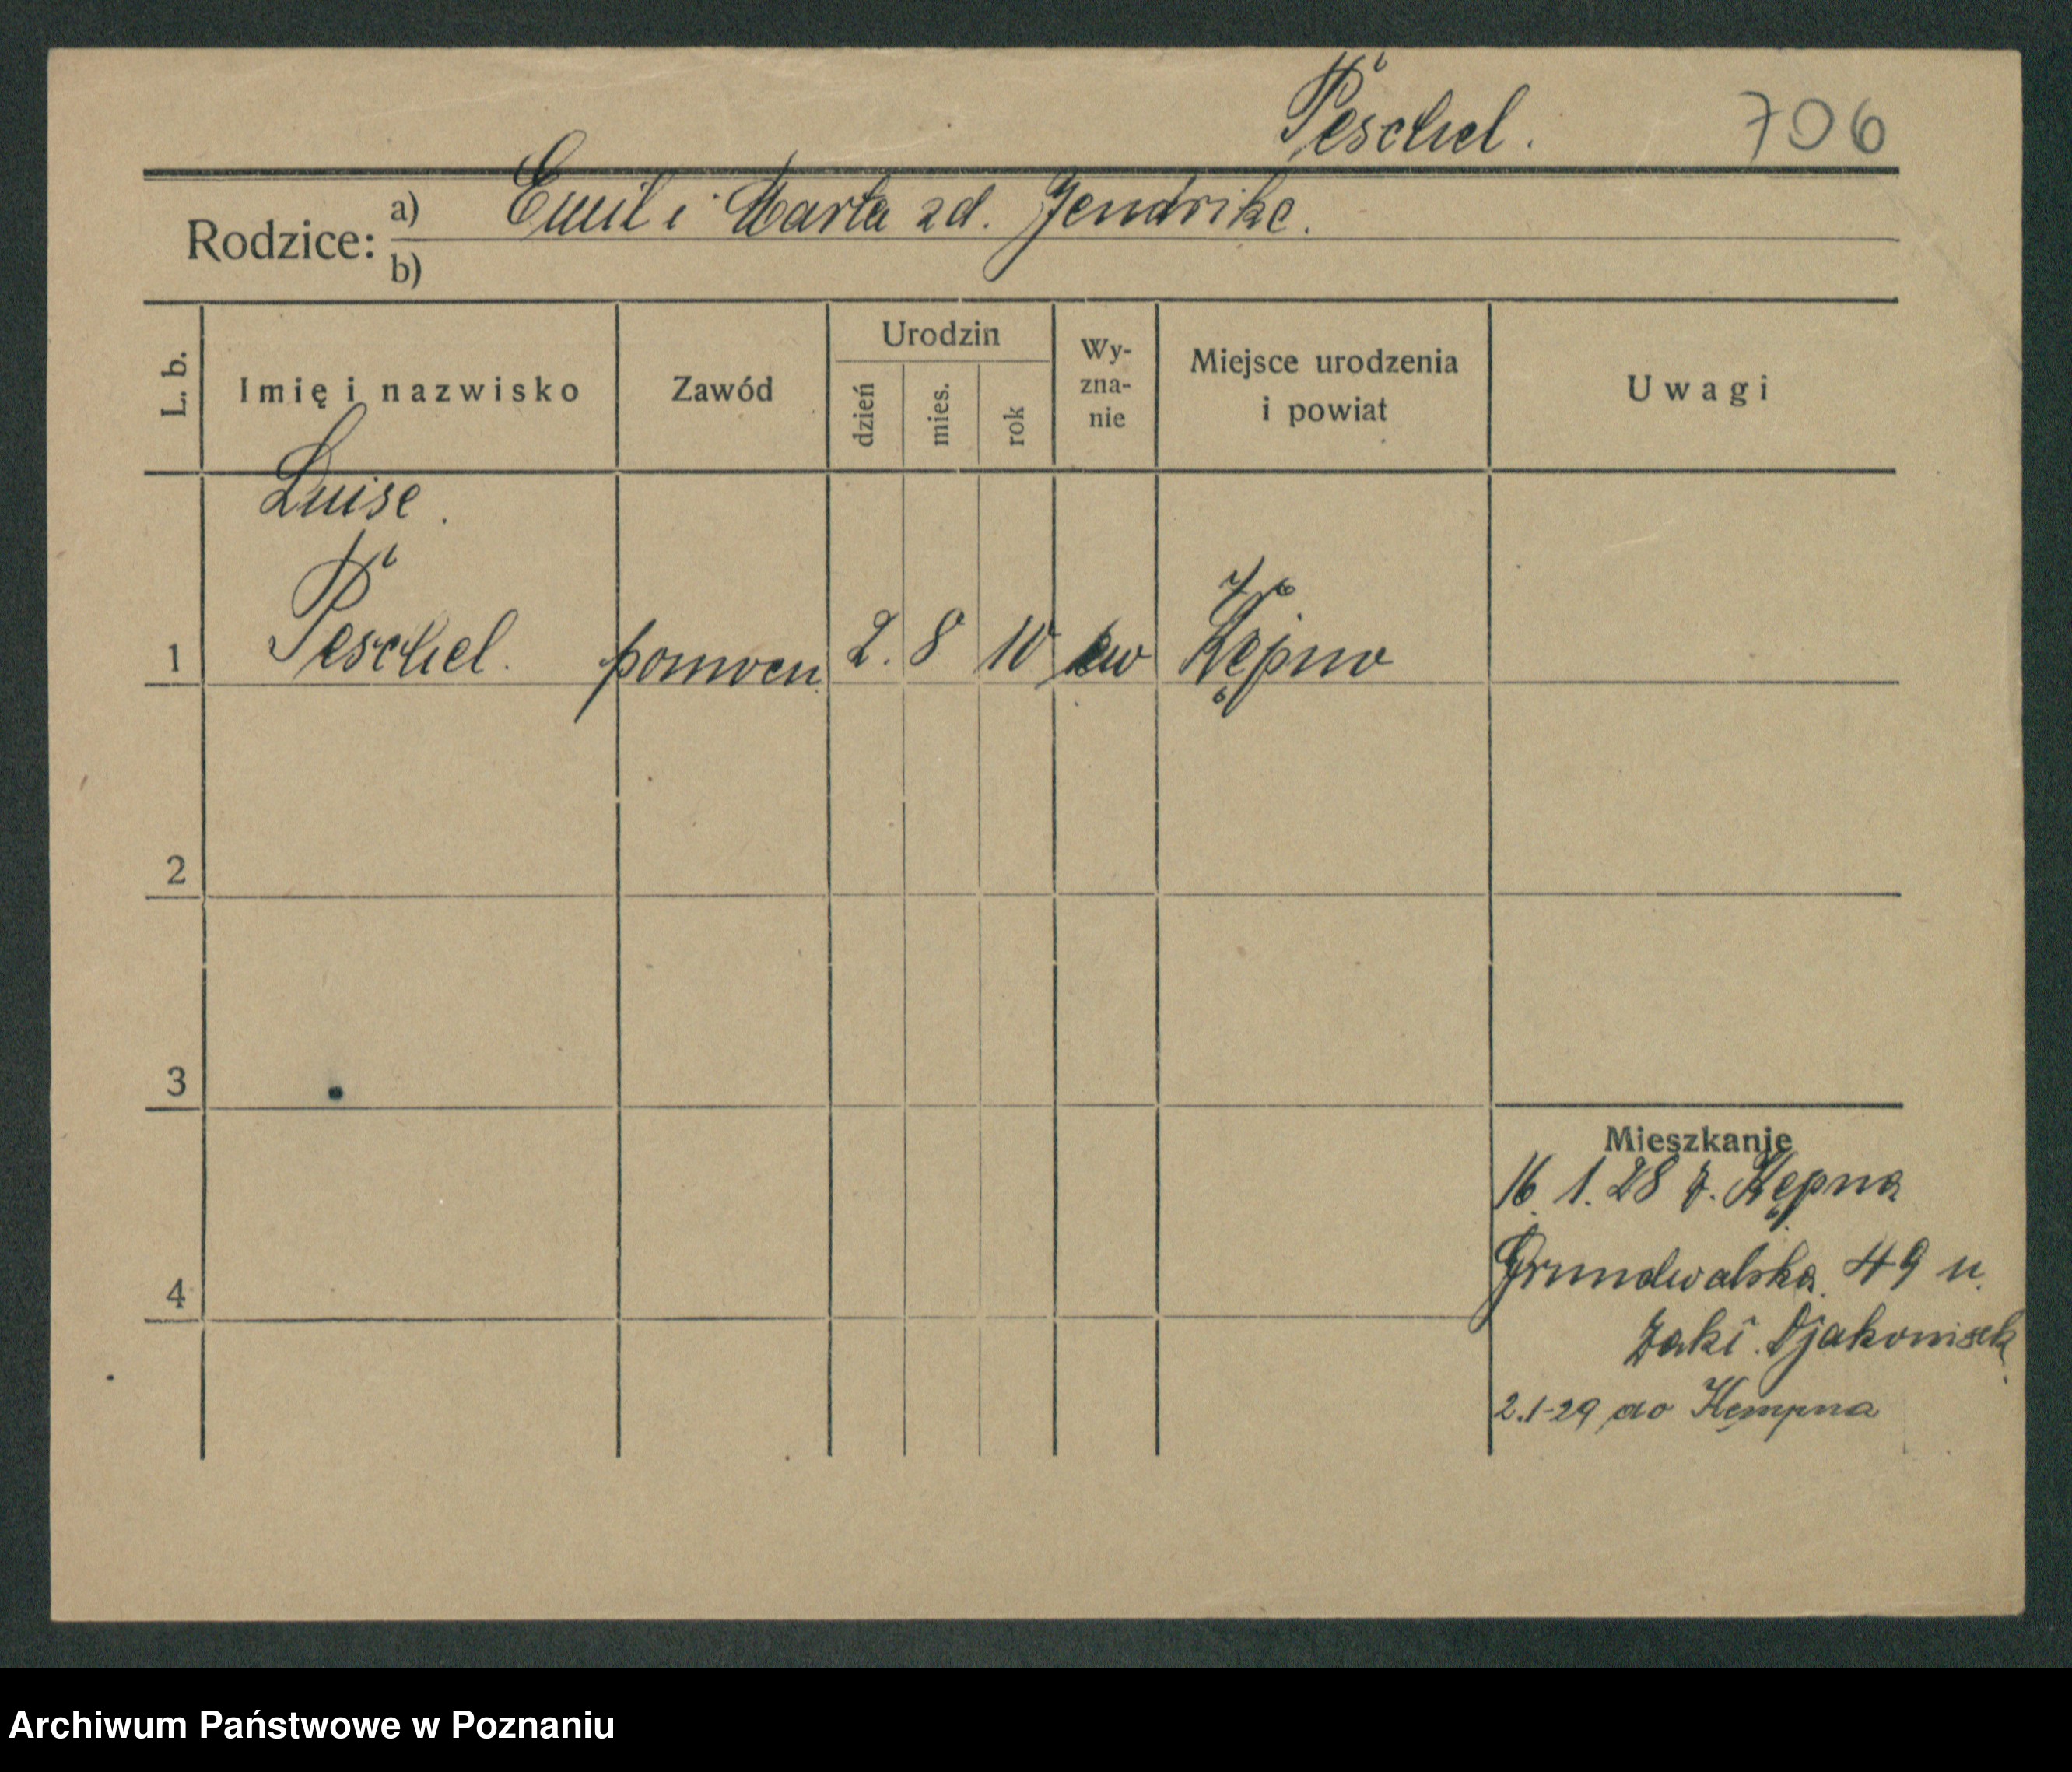 Peschel. 706
Rodzice: a) Emil i Marta zd. Jendrike.
b)
L. b. Imię i nazwisko Zawód Urodzin dzień mies. rok Wy-zna-nie Miejsce urodzenia i powiat Uwagi
Luise.
1 Peschel. pomocn. 2. 8 10 ew Kępno
2
3
Mieszkanie
16. 1. 28 z. Kępna
Grundwalska 49 u.
4
Zakł. Djakonisek
2.1-29 do Kempna
Archiwum Państwowe w Poznaniu